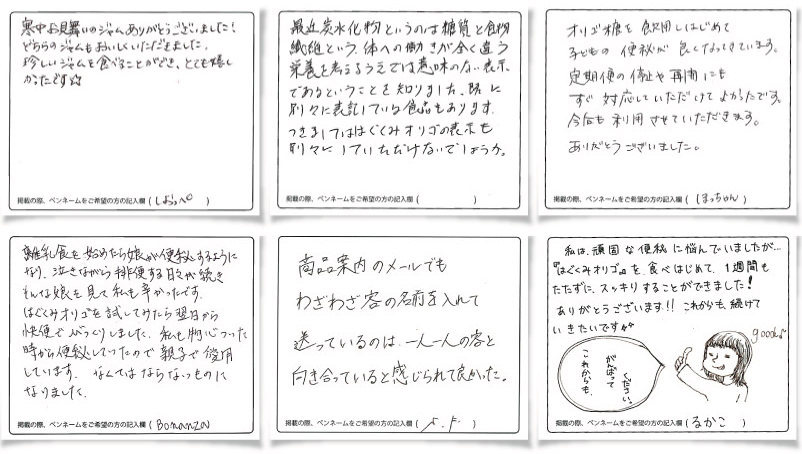 寒中お見舞いのジャムありがとうございました!
どちらのジャムもおいしくいただきました。
珍しいジャムを食べることができ、とても嬉し
かったです☆
掲載の際、ペンネームをご希望の方の記入欄(しおっぺ)
最近炭水化物というのは糖質と食物
繊維という、体への働きが全く違う
栄養を考えるうえでは意味のない表示
であるということを知りました。既に
別々に表記している食品もあります。
つきましてははぐくみオリゴの表示も
別々にしていただけないでしょうか。
掲載の際、ペンネームをご希望の方の記入欄( )
オリゴ糖を飲用しはじめて
子どもの便秘が良くなってきています。
定期便の停止や再開にも
すぐ対応していただけてよかったです。
今后も利用させていただきます。
ありがとうございました。
掲載の際、ペンネームをご希望の方の記入欄(ほっちゃん)
離乳食を始めたら娘が便秘するように
なり、泣きながら排便する日々が続き
そんな娘を見て私も辛かったです。
はぐくみオリゴを試してみたら翌日から
快便でびっくりしました。私も物心ついた
時から便秘していたので親子で愛用
しています。なくてはならないものに
なりました。
掲載の際、ペンネームをご希望の方の記入欄(Bonanza
商品案内のメールでも
わざわざ客の名前を入れて
送っているのは、一人一人の客と
向き合っていると感じられて良かった。
掲載の際、ペンネームをご希望の方の記入欄( )
私は、頑固な便秘に悩んでいましたが…
『はぐくみオリゴ』を食べはじめて、1週間も
たたずに、スッキリすることができました!
ありがとうございます!! これからも、続けて
いきたいです
good♪
これからも、
がんばって
ください。
掲載の際、ペンネームをご希望の方の記入欄(るかこ)